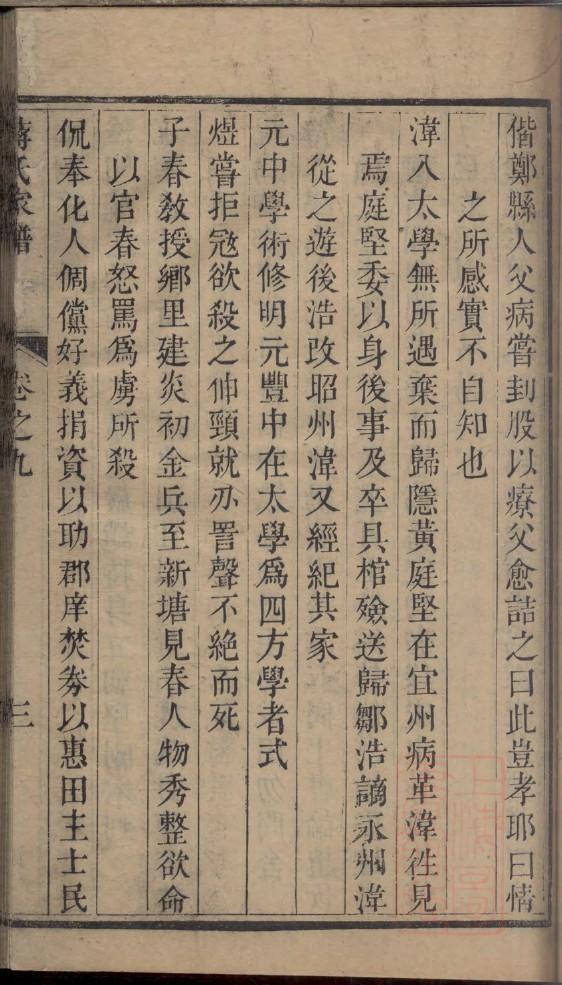 偕鄭縣人父病嘗刲股以療父愈詰之曰此豈孝耶曰情
之所感實不自知也
湋入太學無所遇棄而歸隱黃庭堅在宜州病革湋徃見
焉庭堅委以身後事及卒具棺殮送歸鄒浩謫永州湋
從之遊後浩改昭州湋又經紀其家
元中學術修明元豐中在太學爲四方學者式
煜嘗拒冦欲殺之伸頸就刃詈聲不絕而死
子春敎授鄉里建炎初金兵至新塘見春人物秀整欲命
以官春怒罵爲虜所殺
侃奉化人倜儻好義捐資以助郡庠焚券以惠田主士民
蔣氏家譜
卷之九
三